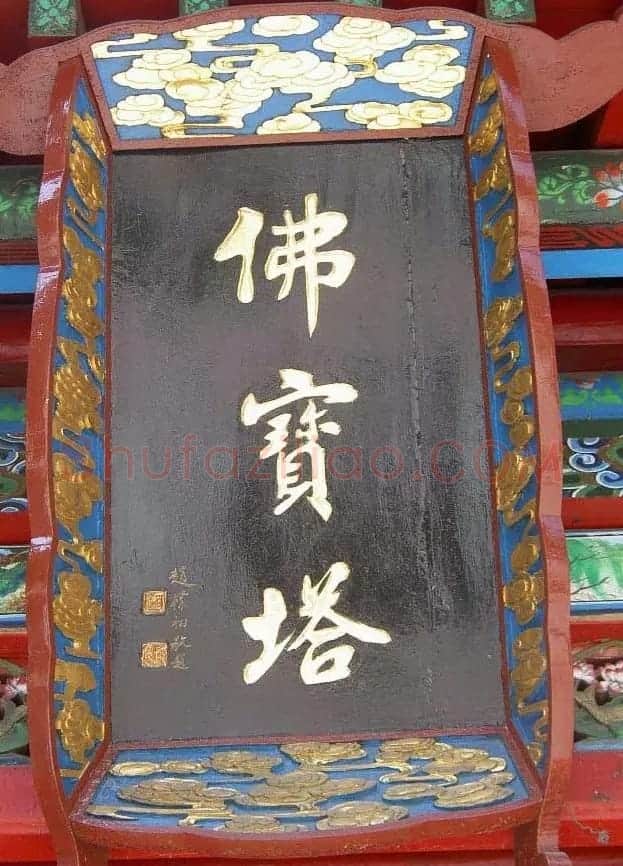 佛寶塔
趙樸初敬題
hufazidao.COM